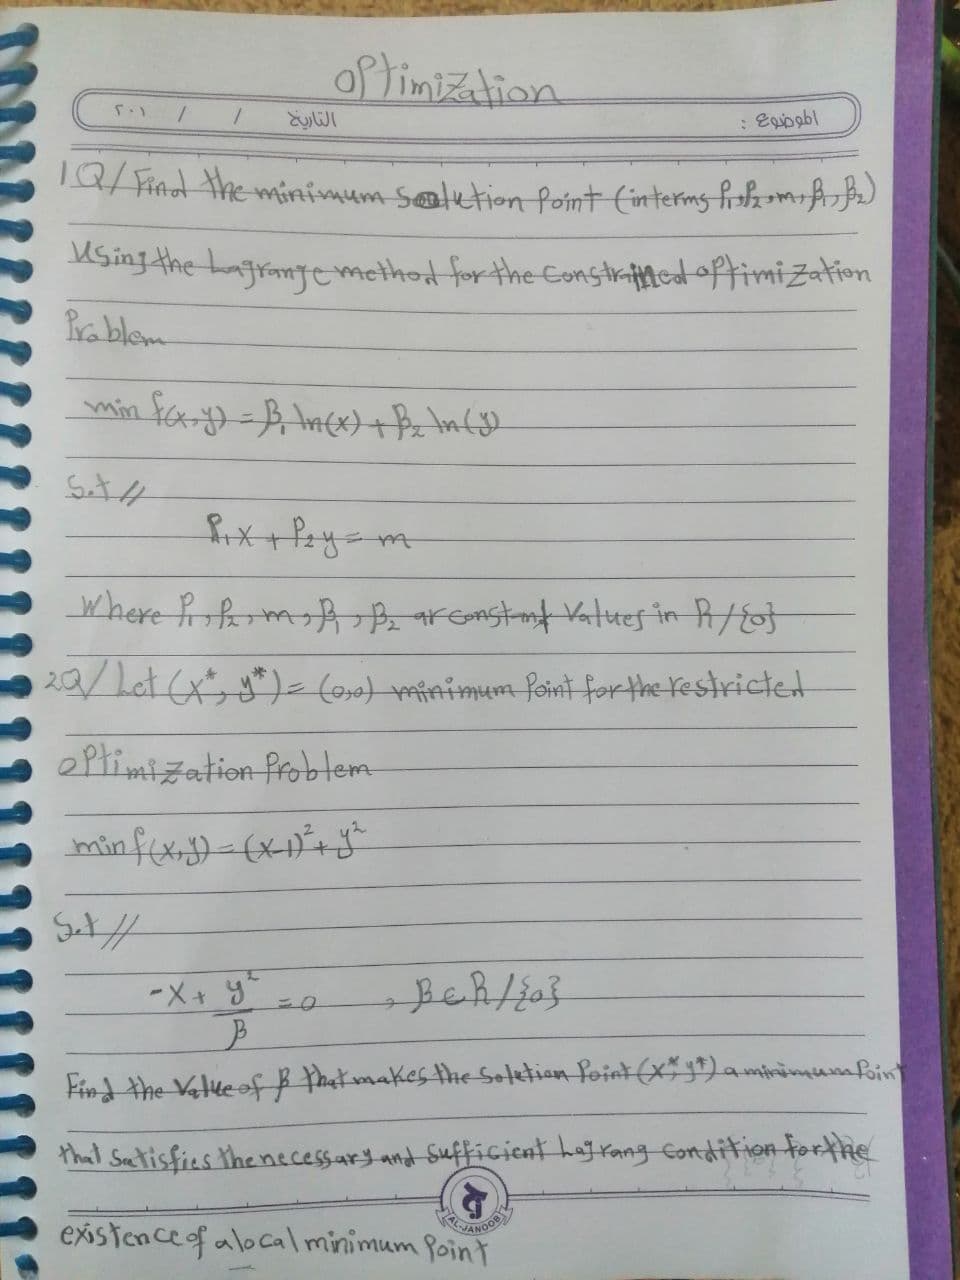 optimization
٢٠١ / / التاريخ الموضوع :
1Q/ Find the minimum Solution Point (interms P₁,P₂,m,β₁,β₂)
Using the Lagrange method for the constrained optimization
Problem
min f(x,y) = β₁ ln(x) + β₂ ln(y)
S.t //
P₁x + P₂y = m
Where P₁, P₂, m, β₁, β₂ ar constant Values in R/{0}
2Q/ Let (x*, y*) = (0,0) minimum Point for the restricted
optimization Problem
min f(x,y) = (x-1)² + y²
S.t //
-x + y²/β = 0 , β∈R/{0}
Find the Value of β that makes the Solution Point (x*, y*) a minimum Point
that Satisfies the necessary and Sufficient Lagrang condition for the
AL-JANOOB
existence of a local minimum Point